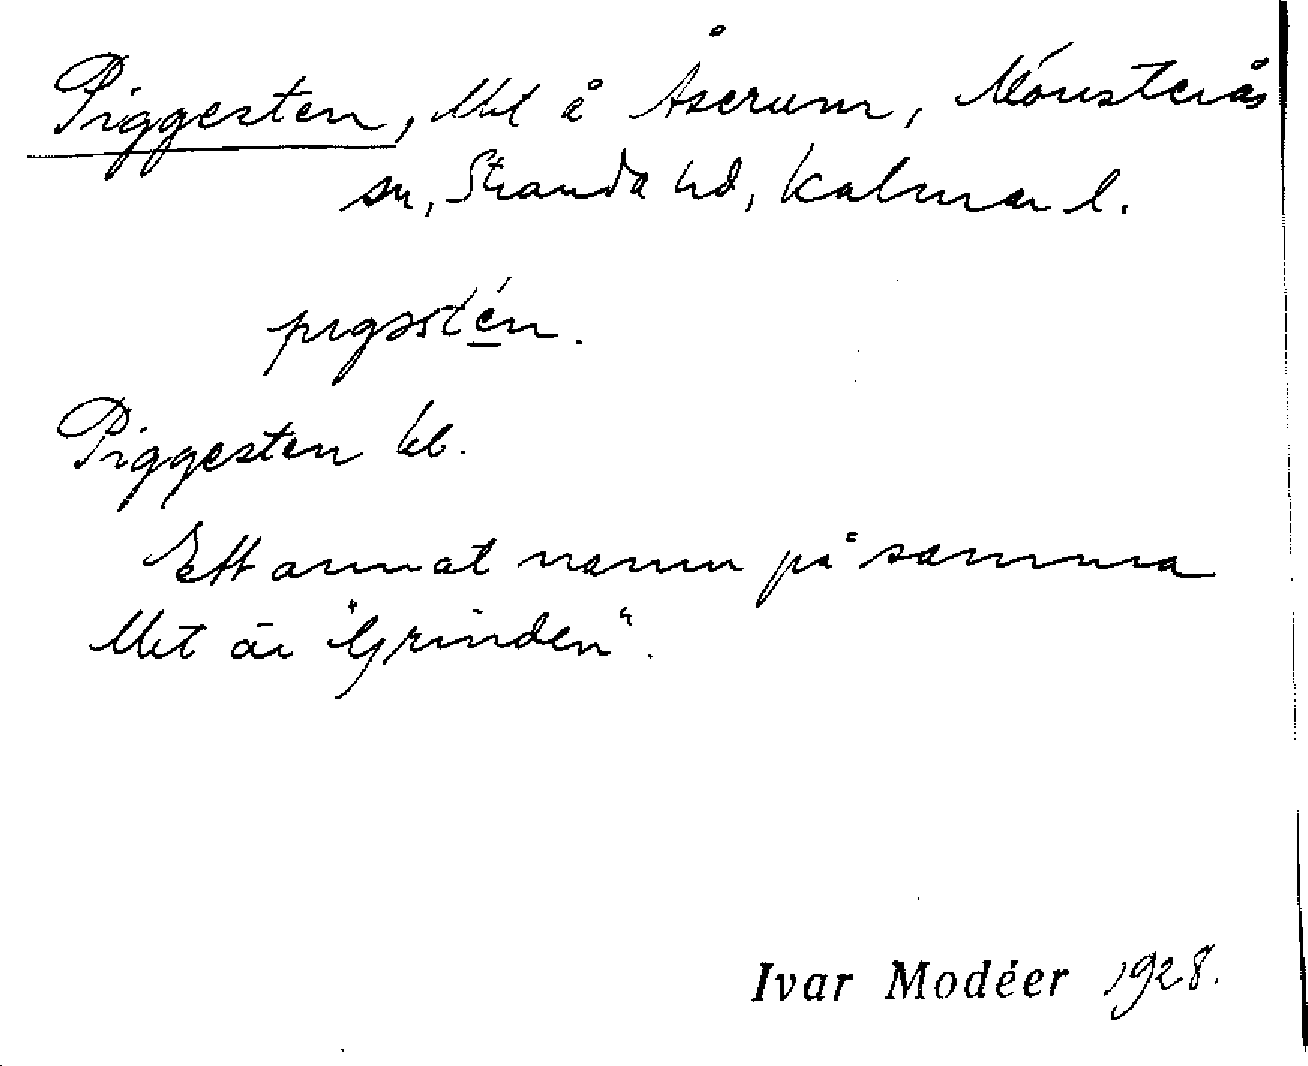 Piggesten, lht å Åserum, Mönsterås
sn, Stranda hd, Kalmar l.
pigsstén.
Piggesten kb.
Ett annat namn på samma
lht är "Grinden".
Ivar Modéer 1928.